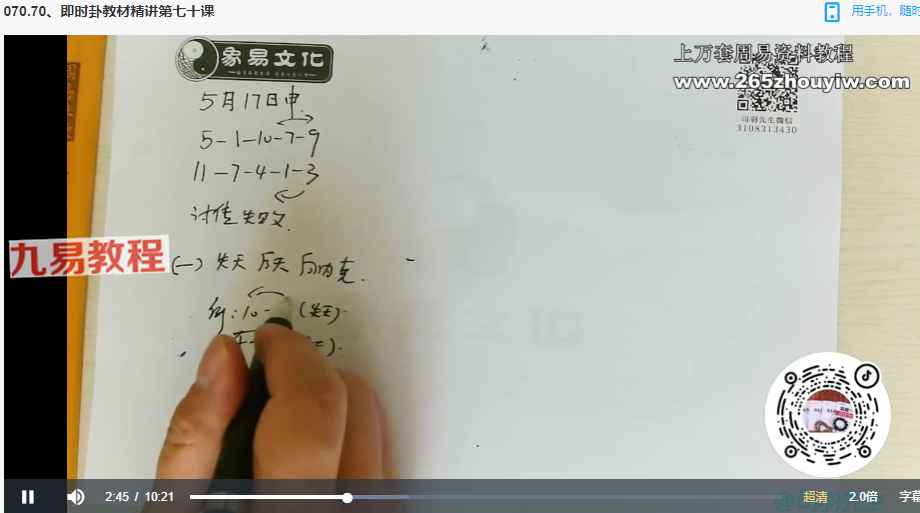 070.70、即时卦教材精讲第七十课
用手机，随时
象易文化
上万套周易资料教程
www.265zhouyiw.com
3108313430
5月17日申
5-1-10-7-9
11-7-4-1-3
讨债失败.
九易教程
(一) 先天 后天 向内克.
例:10-
(先天).
2:45 / 10:21
超清
2.0倍
字幕